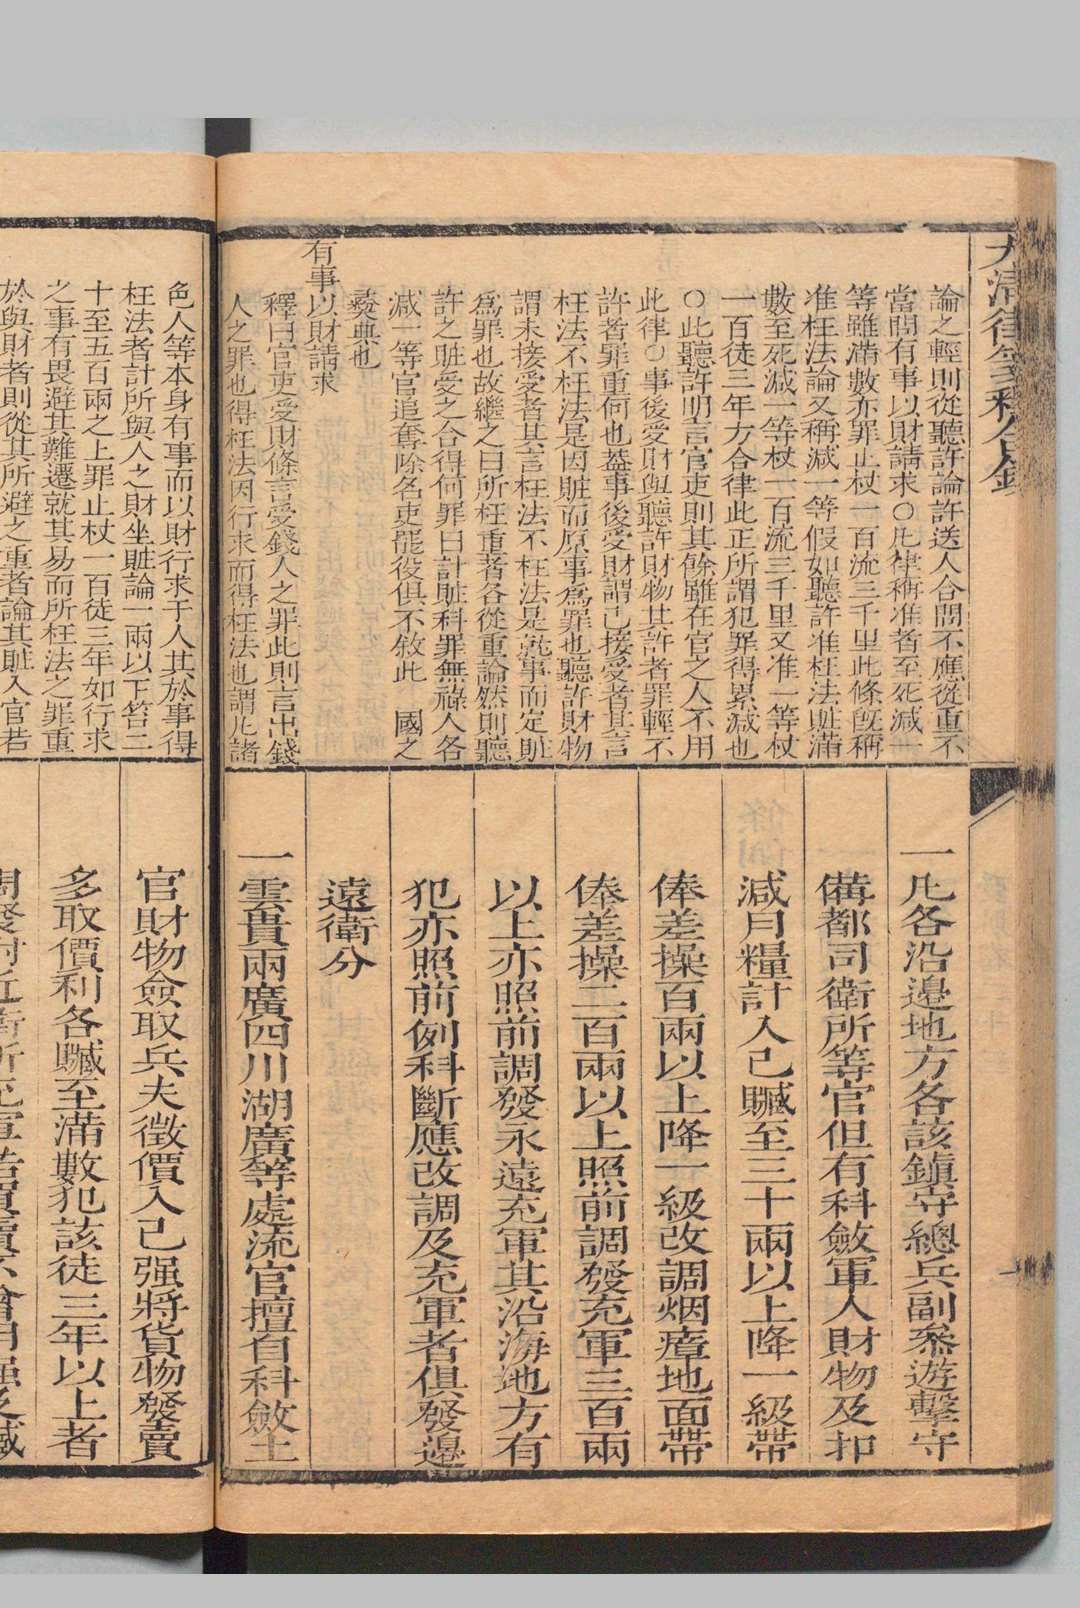 論之輕則從聽許論許送人合問不應從重不
當問有事以財請求○凡律稱准者至死減一
等雖滿數亦罪止杖一百流三千里此條既稱
准枉法論又稱減一等假如聽許准枉法賍滿
數至死減一等杖一百流三千里又准一等杖
一百徒三年方合律此正所謂犯罪得累減也
○此聽許明言官吏則其餘雖在官之人不用
此律○事後受財與聽許財物其許者罪輕不
許者罪重何也葢事後受財謂已接受者其言
枉法不枉法是因賍而原事爲罪也聽許財物
謂未接受者其言枉法不枉法是就事而定賍
爲罪也故繼之曰所枉重者各從重論然則聽
許之賍受之合得何罪曰計賍科罪無祿人各
減一等官追奪除名吏罷役俱不敘此 國之
彛典也
有事以財請求
釋曰官吏受財條言受錢人之罪此則言出錢
人之罪也得枉法因行求而得枉法也謂凡諸
大清律
一凡各沿邊地方各該鎮守總兵副叅遊擊守
備都司衛所等官但有科斂軍人財物及扣
減月糧計入己贓至三十兩以上降一級帶
俸差操百兩以上降一級改調烟瘴地面帶
俸差操二百兩以上照前調發充軍三百兩
以上亦照前調發永遠充軍其沿海地方有
犯亦照前例科斷應改調及充軍者俱發邊
遠衛分
一雲貴兩廣四川湖廣等處流官擅自科斂土
色人等本身有事而以財行求于人其於事得
枉法者計所與人之財坐賍論一兩以下笞二
十至五百兩之上罪止杖一百徒三年如行求
之事有畏避其難遷就其易而所枉法之罪重
於與財者則從其所避之重者論其賍入官若
官財物僉取兵夫徵價入己强將貨物發賣
多取價利各贓至滿數犯該徒三年以上者